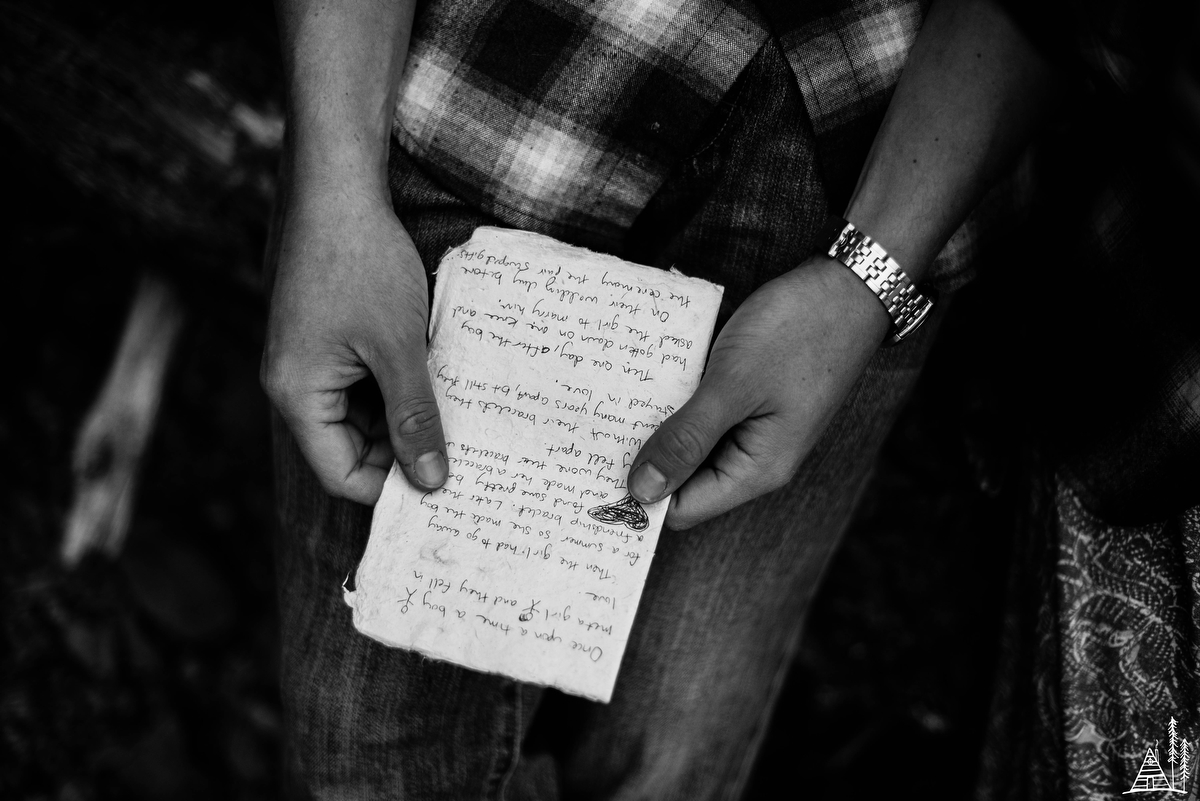 Once upon a time a boy
met a girl and they fell in
love.
Then the girl had to go away
for a summer so she made the boy
a friendship braclet. Later the
found some pretty
and made her a bracelet
They wore their bracelets
fell apart.
Without their bracelets they
spent many years apart, but still they
stayed in love.
Then one day, after the boy
had gotten down on one knee and
asked the girl to marry him.
On their wedding day before
the ceremony the pair swaped gifts